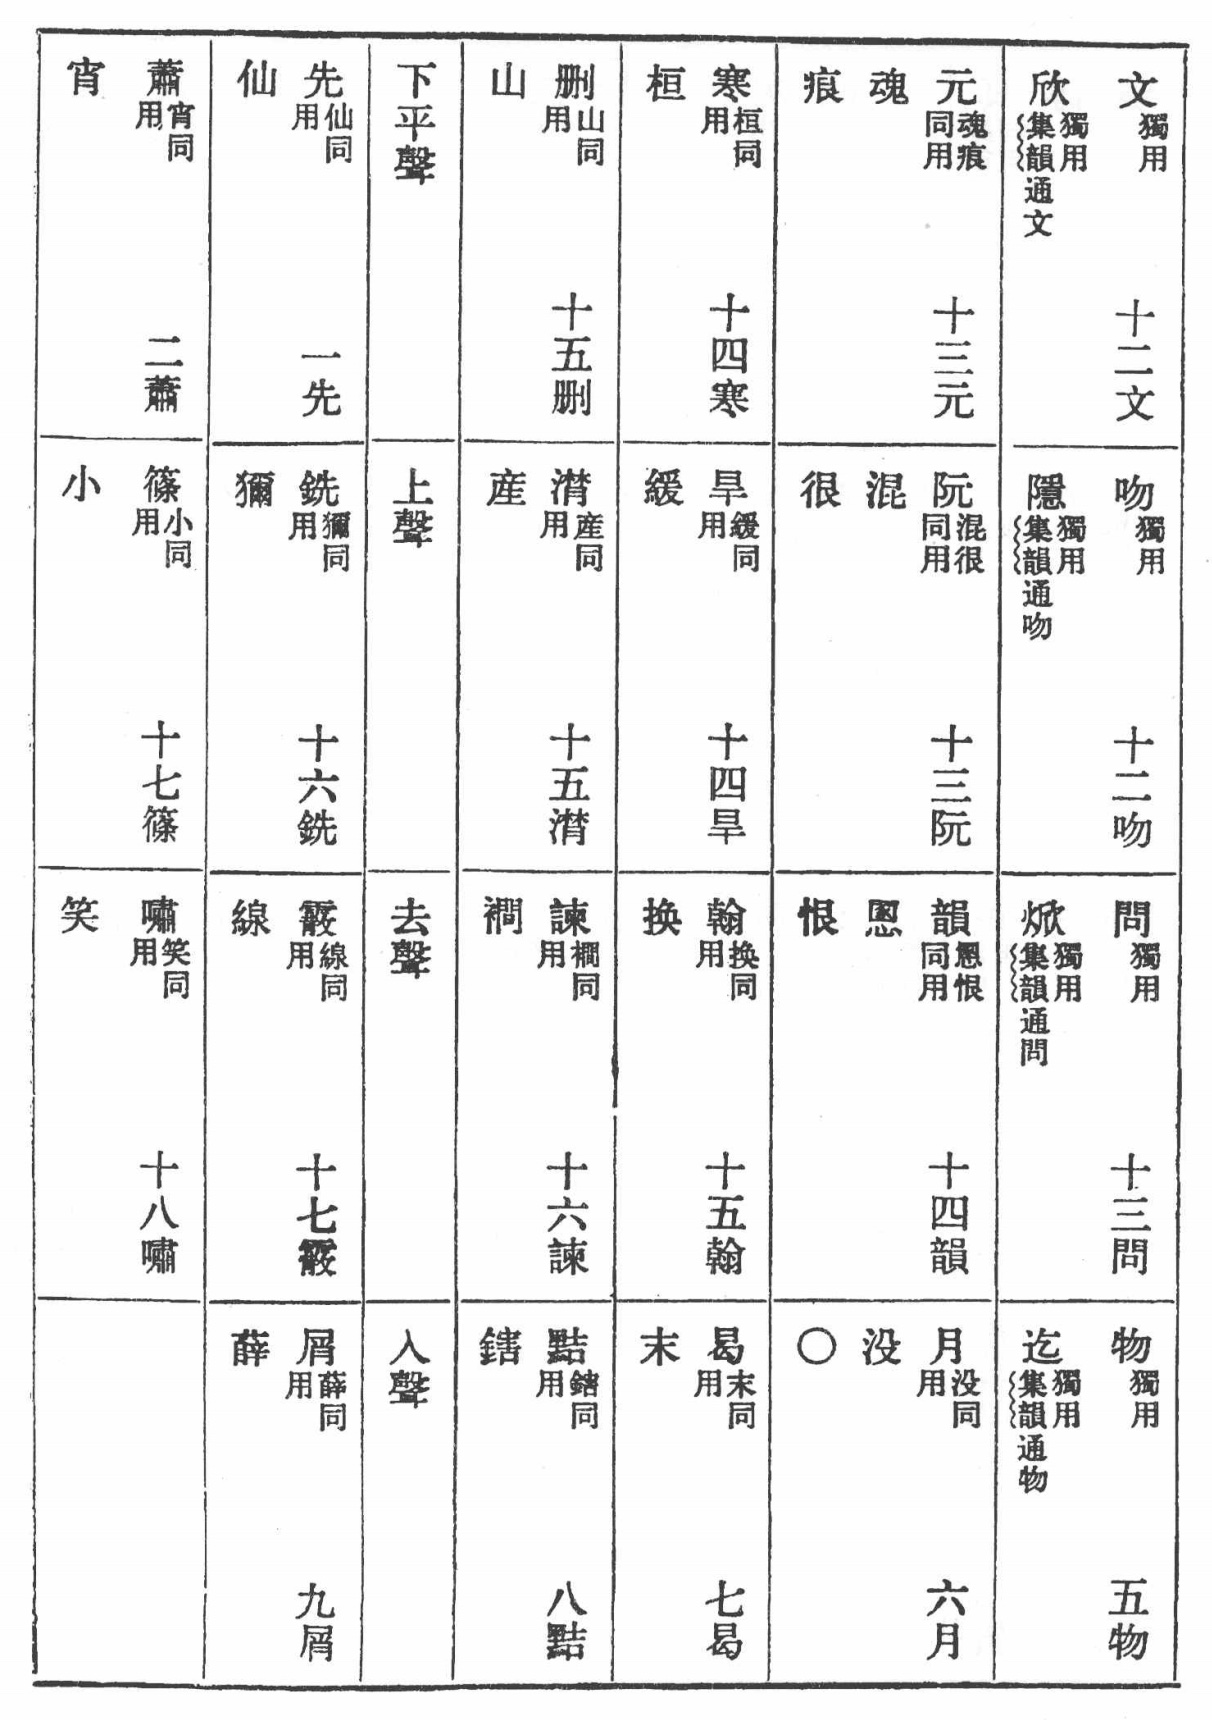 文獨用 十二文
欣獨用集韻通文
吻獨用 十二吻
隱獨用集韻通吻
問獨用 十三問
焮獨用集韻通問
物獨用 五物
迄獨用集韻通物
元魂痕同用 十三元
魂
痕
阮混很同用 十三阮
混
很
韻慁恨同用 十四韻
慁
恨
月没同用 六月
没
〇
寒桓同用 十四寒
桓
旱緩同用 十四旱
緩
翰换同用 十五翰
换
曷末同用 七曷
末
删山同用 十五删
山
潸産同用 十五潸
産
諫襇同用 十六諫
襇
黠鎋同用 八黠
鎋
下平聲
上聲
去聲
入聲
先仙同用 一先
仙
銑獮同用 十六銑
獮
霰線同用 十七霰
線
屑薛同用 九屑
薛
蕭宵同用 二蕭
宵
篠小同用 十七篠
小
嘯笑同用 十八嘯
笑